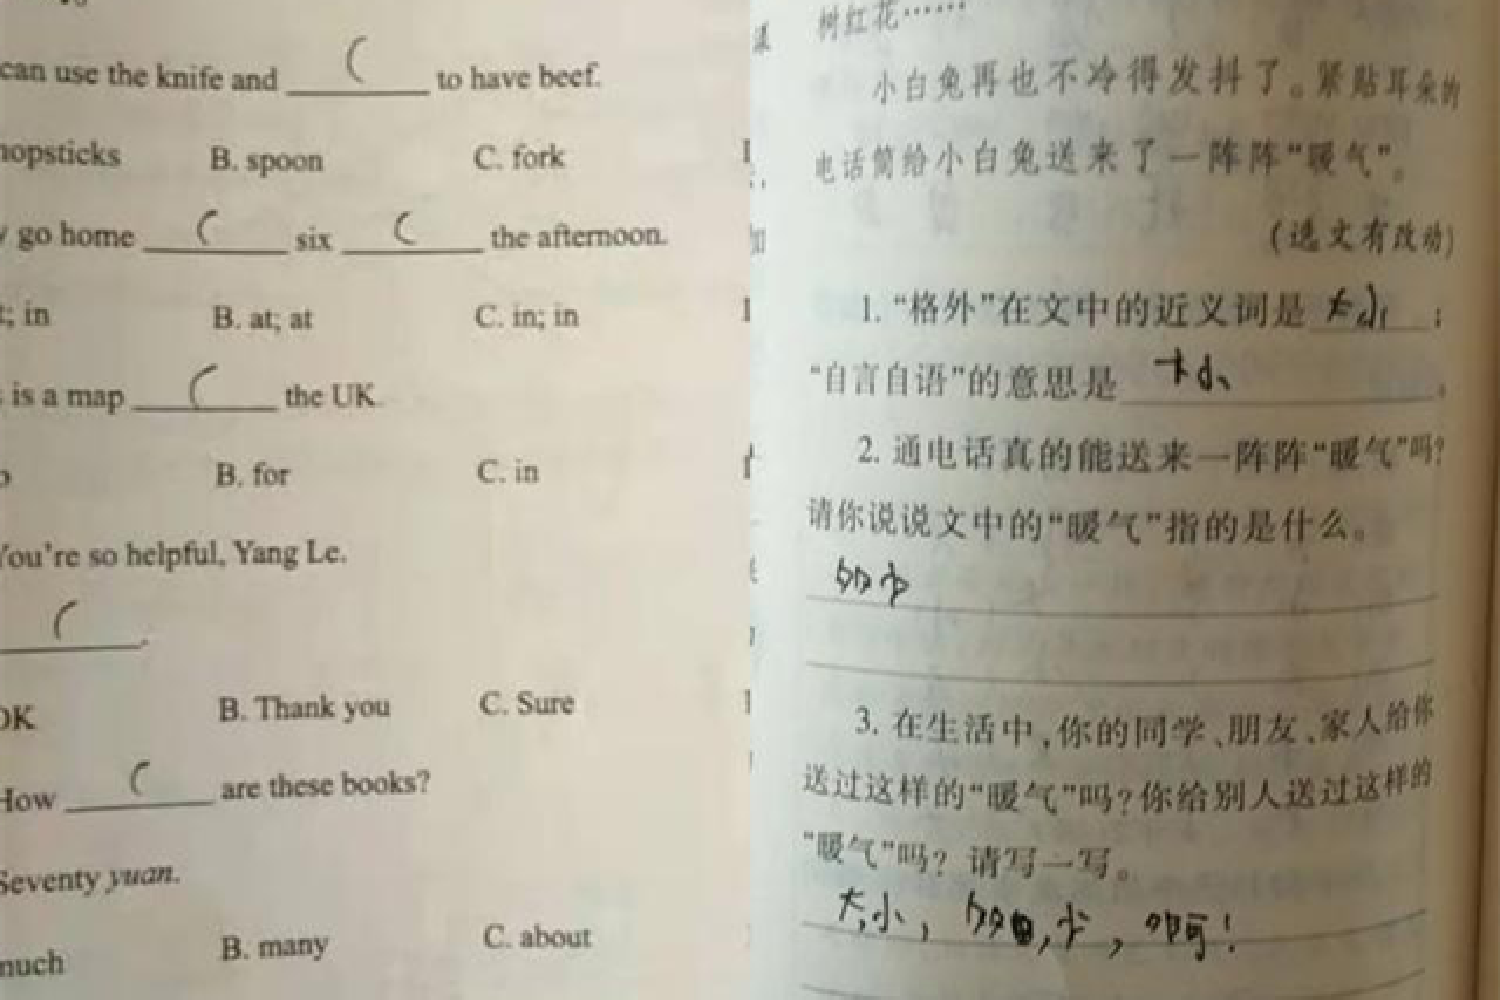 can use the knife and C to have beef.
B. spoon C. fork
go home C six C the afternoon.
; in B. at; at C. in; in
is a map C the UK.
B. for C. in
You're so helpful, Yang Le.
C .
OK B. Thank you C. Sure
How C are these books?
Seventy yuan.
much B. many C. about
树红花……
小白兔再也不冷得发抖了。紧贴耳朵的
电话筒给小白兔送来了一阵阵“暖气”。
(选文有改动)
1.“格外”在文中的近义词是 大小 ;
“自言自语”的意思是 。
2. 通电话真的能送来一阵阵“暖气”吗?
请你说说文中的“暖气”指的是什么。
3. 在生活中,你的同学、朋友、家人给你
送过这样的“暖气”吗?你给别人送过这样的
“暖气”吗? 请写一写。
大小,